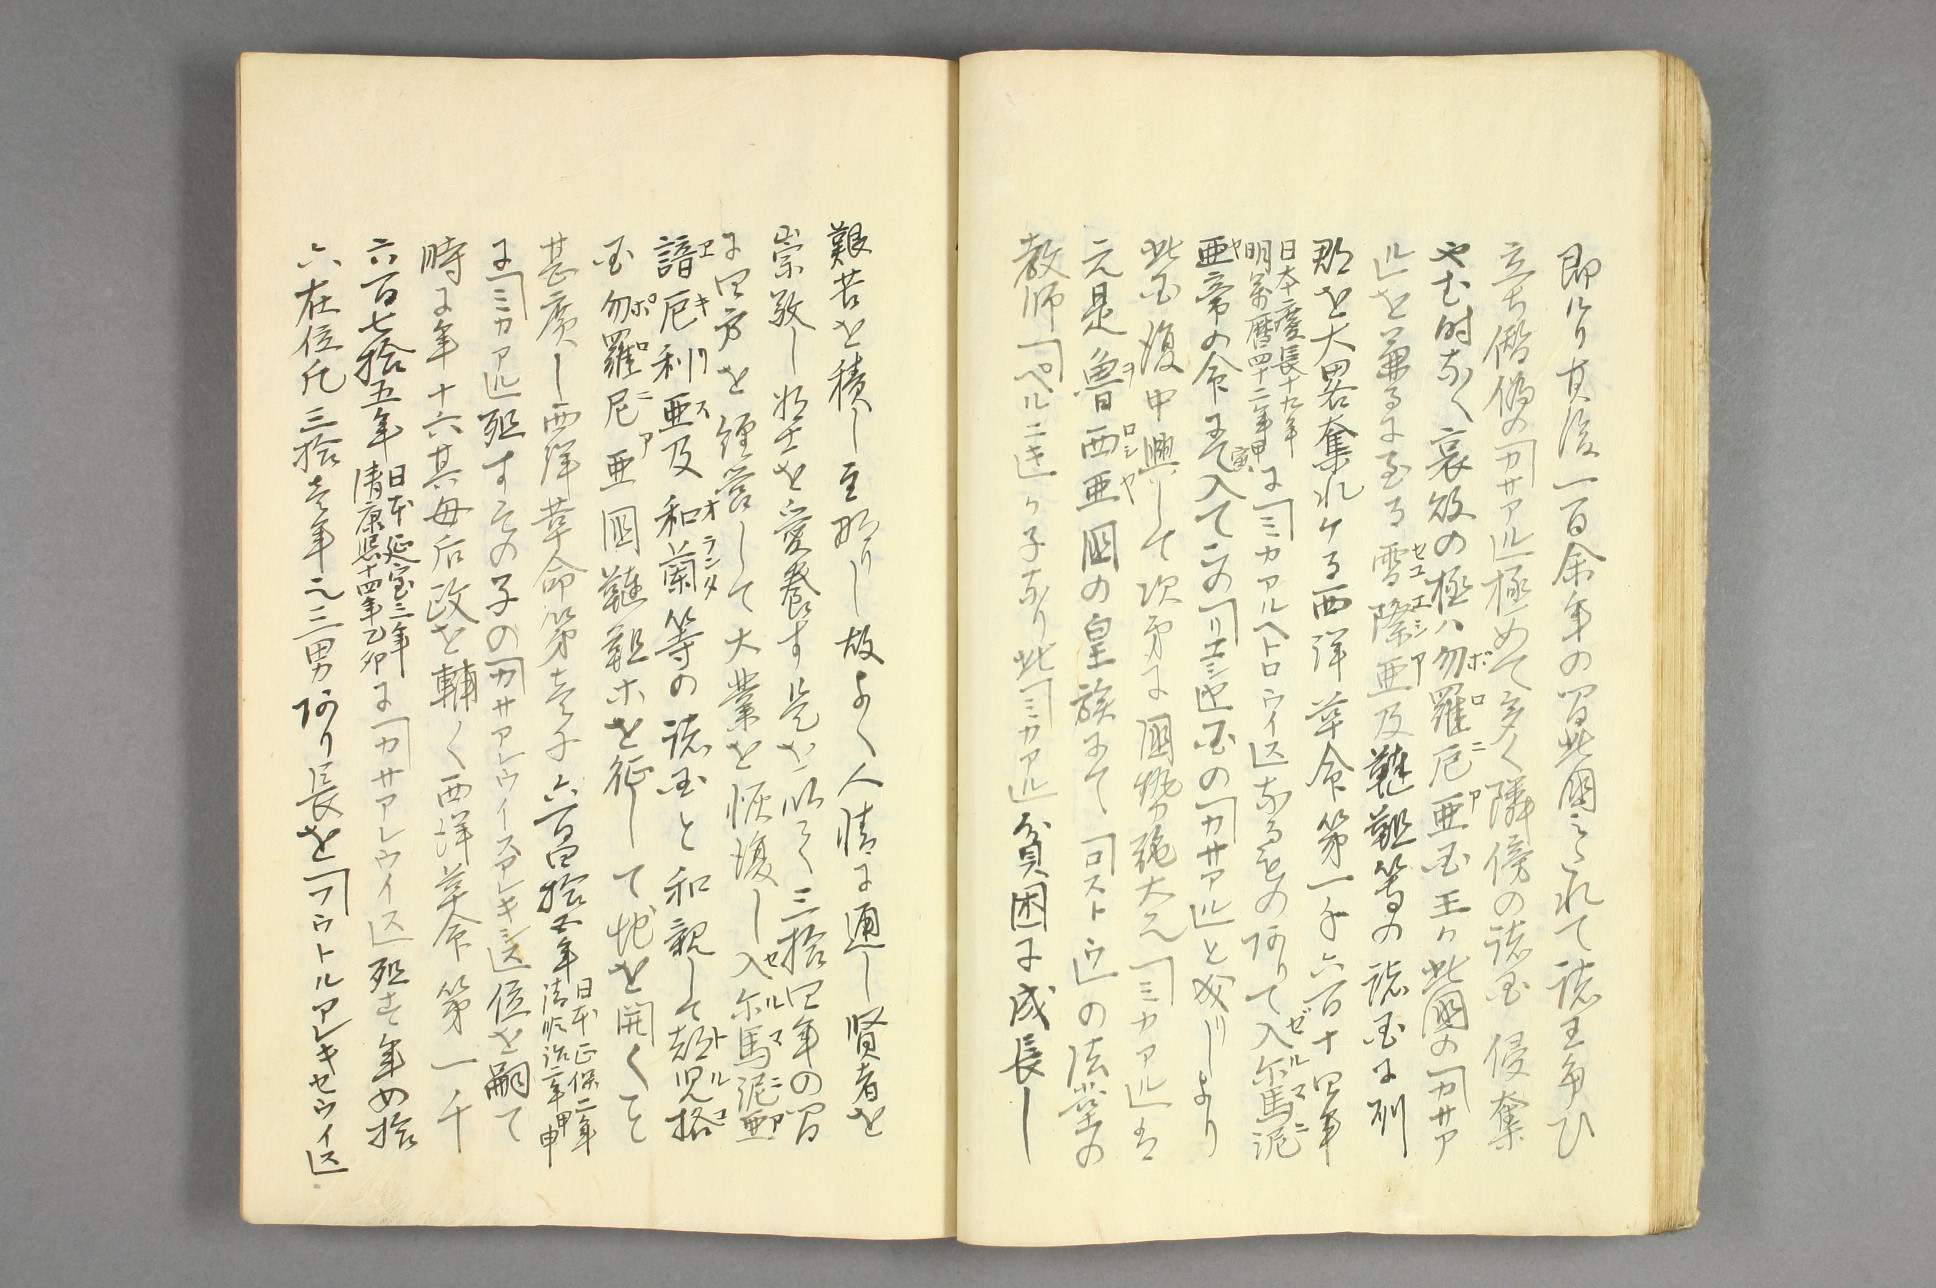 即ルリ其後一百余年の間此國みたれて諸王争ひ
立ち僭偽の「カサアル」極めて多く隣傍の諸国侵奪
やむ時なく衰敗の極ハ勿羅尼亜国王ゟ此國の「カサア
ル」を兼るに至る雪際亜及韃靼等の諸国に列
郡を大畧奪れケる西洋革命第一千六百十四年
日本慶長十九年
明萬暦四十二年甲寅
に「ミカアルヘトロウイス」なるもの阿りて入尓馬泥
亜帝の令にて入てこの「リユシヤ」国の「カサアル」と成りしより
此国復中興して次第に國勢強大元「ミカアル」は
元是魯西亜國の皇族にて「ロストウ」の法葉の
教師「ペルニキ」ゟ子なり此「ミカアル」貧困に成長し
艱苦を積し至那りし故よく人情に通し賢者を
崇敬し将士を愛養す是を以て三拾四年の間
に四方を經営して大業を恢復し入尓馬泥亜
諳厄利亜及和蘭等の諸国と和親して都児格
国勿羅尼亜國韃靼ホを征して地を開くこと
甚廣し西洋革命第壱千六百四拾五年
日本正保二年
清順治二年甲申
に「ミカアル」殂すその子の「カサアレウイスアレキシス」位を嗣て
時に年十六其母后政を輔く西洋革命第一千
六百七拾五年
日本延宝三年
清康熙十四年乙卯
に「カサアレウイス」殂す年四拾
六在位凡三拾壱年之三男阿り長を「フウトルアレキセウイス」